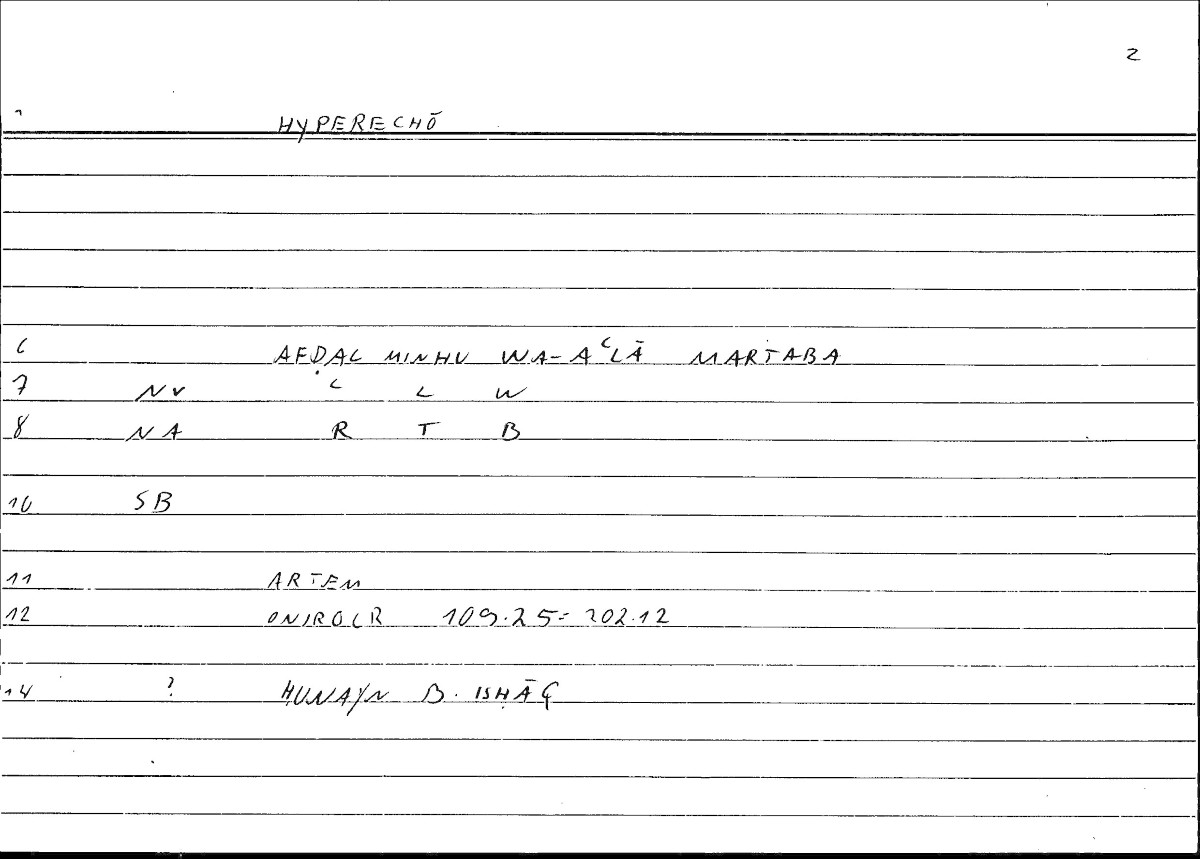 2
1 HYPERECHŌ
6 AFḌAL MINHU WA-AʿLĀ MARTABA
7 NV ʿ L W
8 NA R T B
10 SB
11 ARTEM
12 ONIROCR 109.25 = 202.12
14 ? ḤUNAYN B. ISḤĀQ